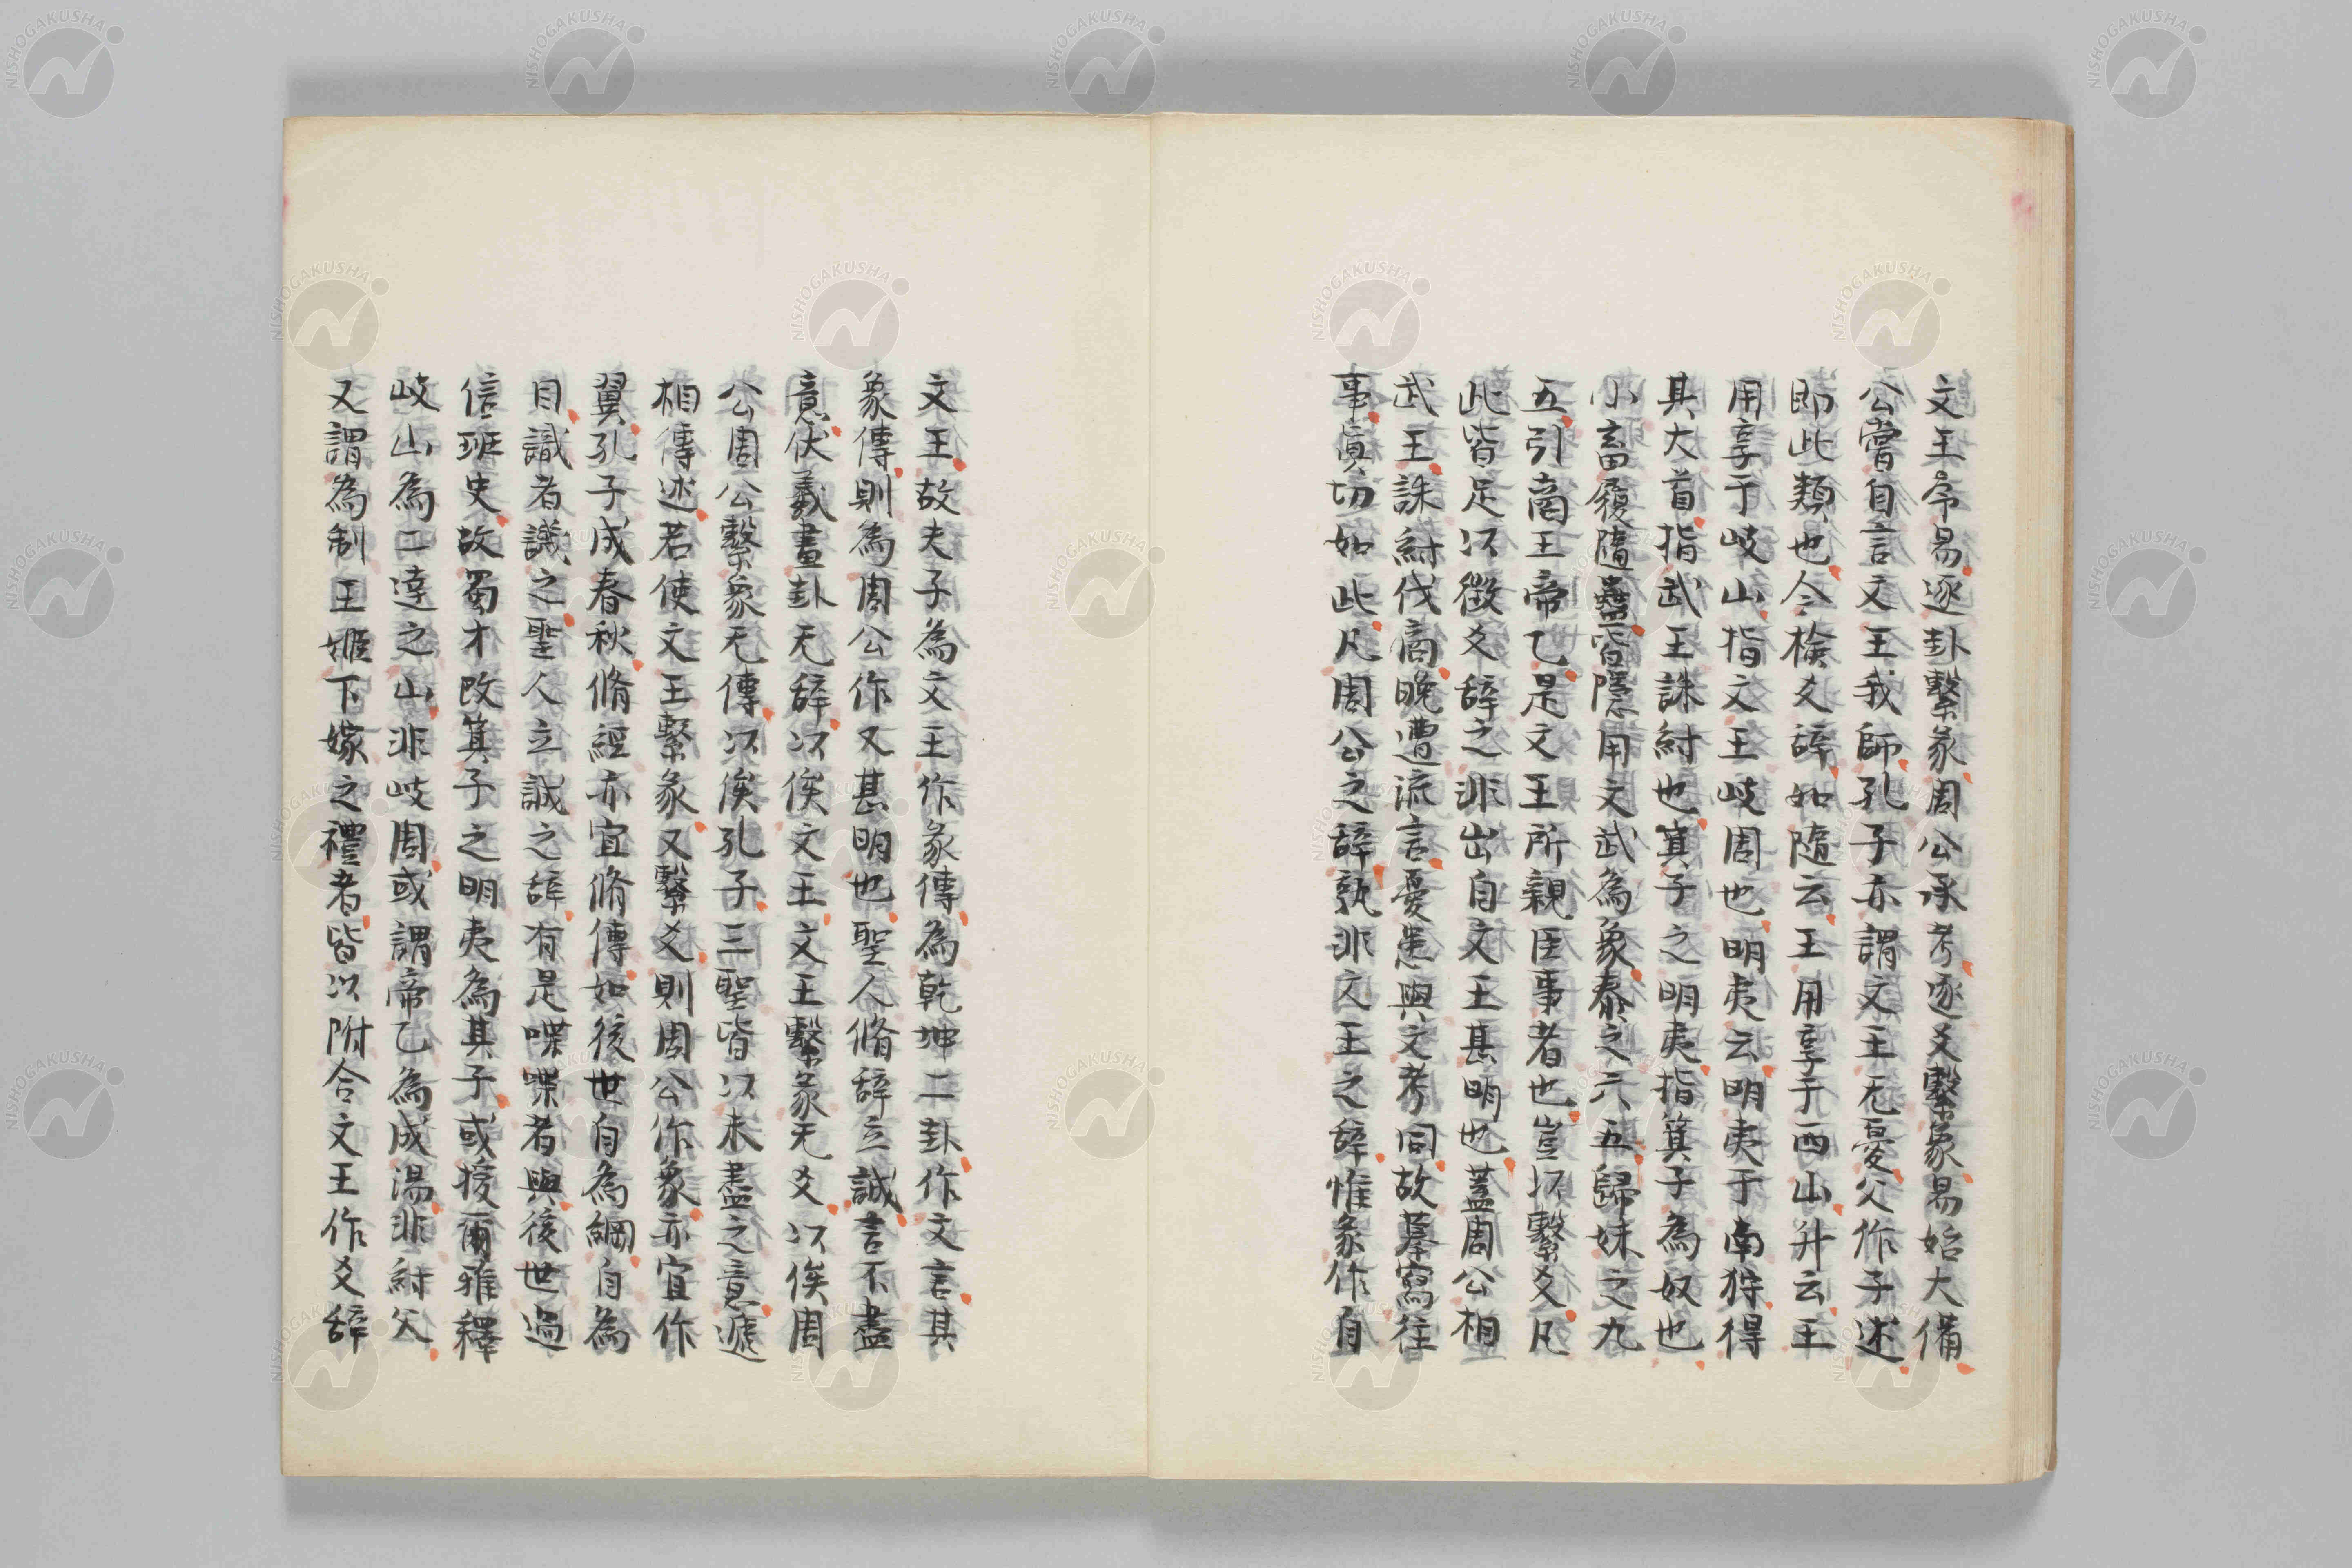 文王序易逐卦繫彖周公承考逐爻繫象易始大備
公嘗自言文王我師孔子亦謂文王无憂父作子述
即此類也今檢爻辭如隨云王用享于西山升云王
用享于岐山指文王岐周也明夷云明夷于南狩得
其大首指武王誅紂也箕子之明夷指箕子為奴也
小畜履隨蠱皆隱用文武為象泰之六五歸妹之九
五引啇王帝乙是文王所親臣事者也豈以繫爻凡
此皆足以徵爻辭之非出自文王甚明也蓋周公相
武王誅紂伐啇晚遭流言憂患與文考同故摹寫往
事真切如此凡周公之辭孰非文王之辭惟彖作自
文王故夫子為文王作彖傳為乾坤二卦作文言其
象傳則為周公作又甚明也聖人脩辭立誠言不盡
意伏羲畫卦无辭以俟文王文王繫彖无爻以俟周
公周公繫象无傳以俟孔子三聖皆以未盡之意遞
相傳述若使文王繫彖又繫爻則周公作象亦宜作
翼孔子成春秋脩經亦宜脩傳如後世自為綱自為
目識者譏之聖人立誠之辭有是喋喋者與後世過
信班史故蜀才改箕子之明夷為其子或援爾雅釋
岐山為二達之山非岐周或謂帝乙為成湯非紂父
又謂為制王姬下嫁之禮者皆以附合文王作爻辭
NISHOGAKUSHA